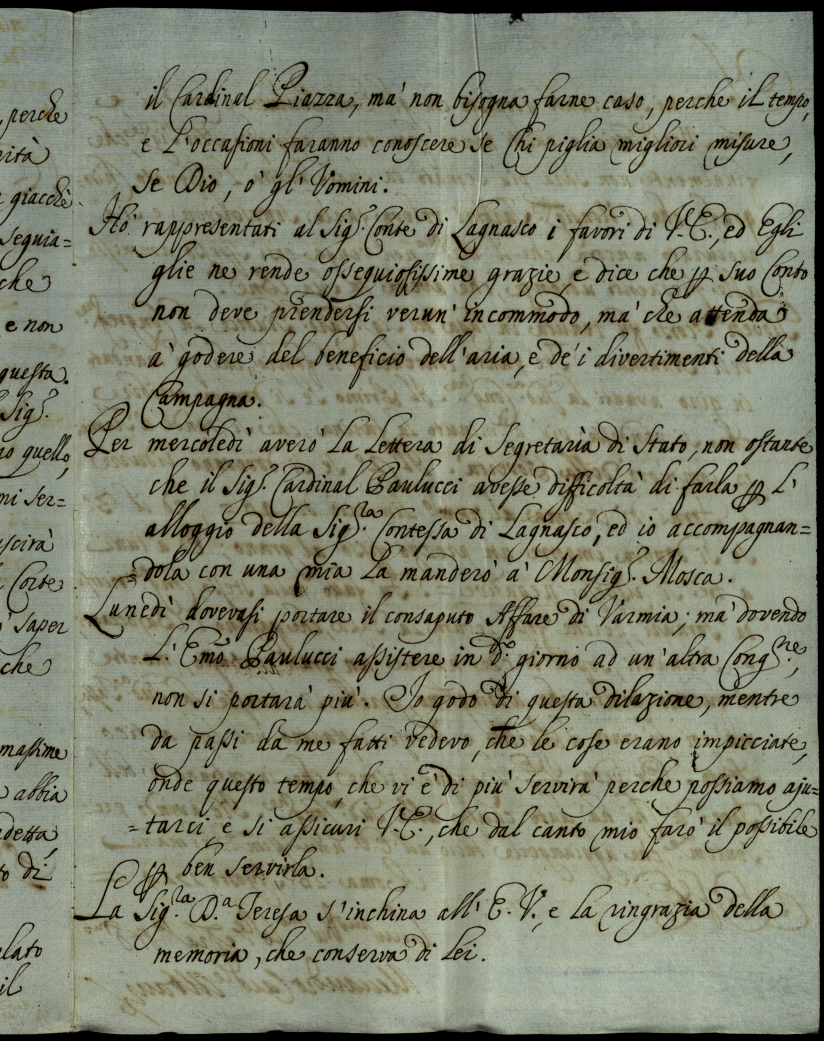 , perche
rità
e giacchè
seguia=
che
e non
questa.
Sig.r
no quello,
mi ser=
uscirà
Corte
saper
che
massime
abbia
detta,
to di
elato
il
il Cardinal Piazza, ma' non bisogna farne caso, perche il tempo,
e l'occasioni faranno conoscere se chi piglia migliori misure,
se Dio, ò gl' Vomini.
Hò rappresentati al Sig.r Conte di Lagnasco i favori di V.E., ed Egli
glie ne rende ossequiosissime grazie, e dice che ꝑ suo Conto
non deve prendersi verun' incommodo, ma' che attenda
à godere del beneficio dell'aria, e de' i divertimenti della
Campagna.
Per mercoledì averò la lettera di Segretarìa di Stato, non ostante
che il Sig.r Cardinal Paulucci avesse difficoltà di farla ꝑ l'
alloggio della Sig.ra Contessa di Lagnasco, ed io accompagnan=
=dola con una mia la manderò à Monsig.r Mosca.
Lunedì dovevasi portare il consaputo Affare di Varmia; ma' dovendo
l' Emo Paulucci assistere in d.o giorno ad un'altra Cong.ne,
non si portarà più. Io godo di questa dilazione, mentre
da passi da me fatti vedevo, che le cose erano impicciate,
onde questo tempo, che vi è di più servirà perche possiamo aju=
=tarci, e si assicuri V.E., che dal canto mio farò il possibile
ꝑ ben servirla.
La Sig.ra D.a Teresa s'inchina all' E.V., e la ringrazia della
memoria, che conserva di lei.